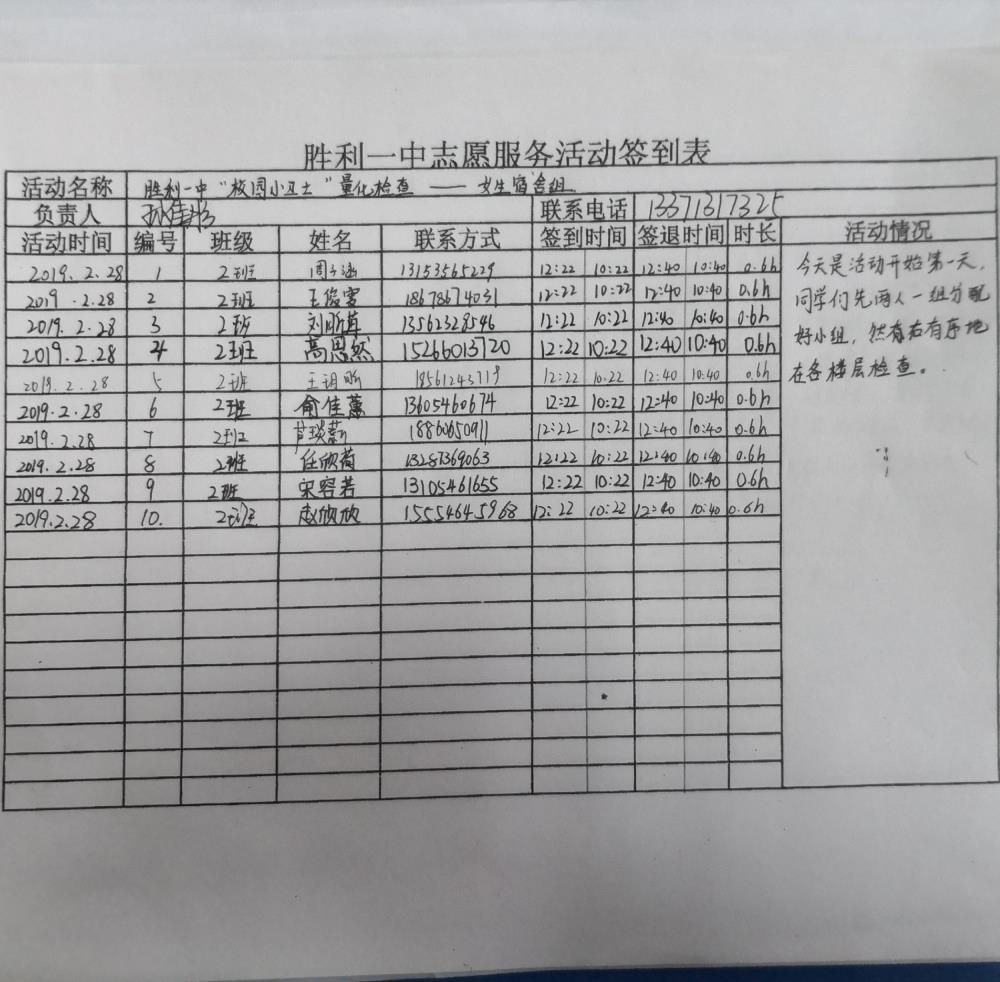 胜利一中志愿服务活动签到表
活动名称 胜利一中“校园小卫士”量化检查 —— 女生宿舍组
负责人 联系电话 13371317325
活动时间 编号 班级 姓名 联系方式 签到时间 签退时间 时长 活动情况
2019.2.28 1 2班 周子涵 13153565229 12:22 10:22 12:40 10:40 0.6h
2019.2.28 2 2班 王俊雯 18678674031 12:22 10:22 12:40 10:40 0.6h
2019.2.28 3 2班 13562328546 12:22 10:22 12:40 10:40 0.6h
2019.2.28 4 2班 高思然 15266013720 12:22 10:22 12:40 10:40 0.6h
2019.2.28 5 2班 王玥昕 18561243719 12:22 10:22 12:40 10:40 0.6h
2019.2.28 6 2班 俞佳蕙 13605460674 12:22 10:22 12:40 10:40 0.6h
2019.2.28 7 2班 18860650911 12:22 10:22 12:40 10:40 0.6h
2019.2.28 8 2班 任欣荷 13287369063 12:22 10:22 12:40 10:40 0.6h
2019.2.28 9 2班 宋容若 13105461655 12:22 10:22 12:40 10:40 0.6h
2019.2.28 10. 2班 赵欣欣 15554645968 12:22 10:22 12:40 10:40 0.6h
今天是活动开始第一天,
同学们先两人一组分配
好小组,然后有序地
在各楼层检查。